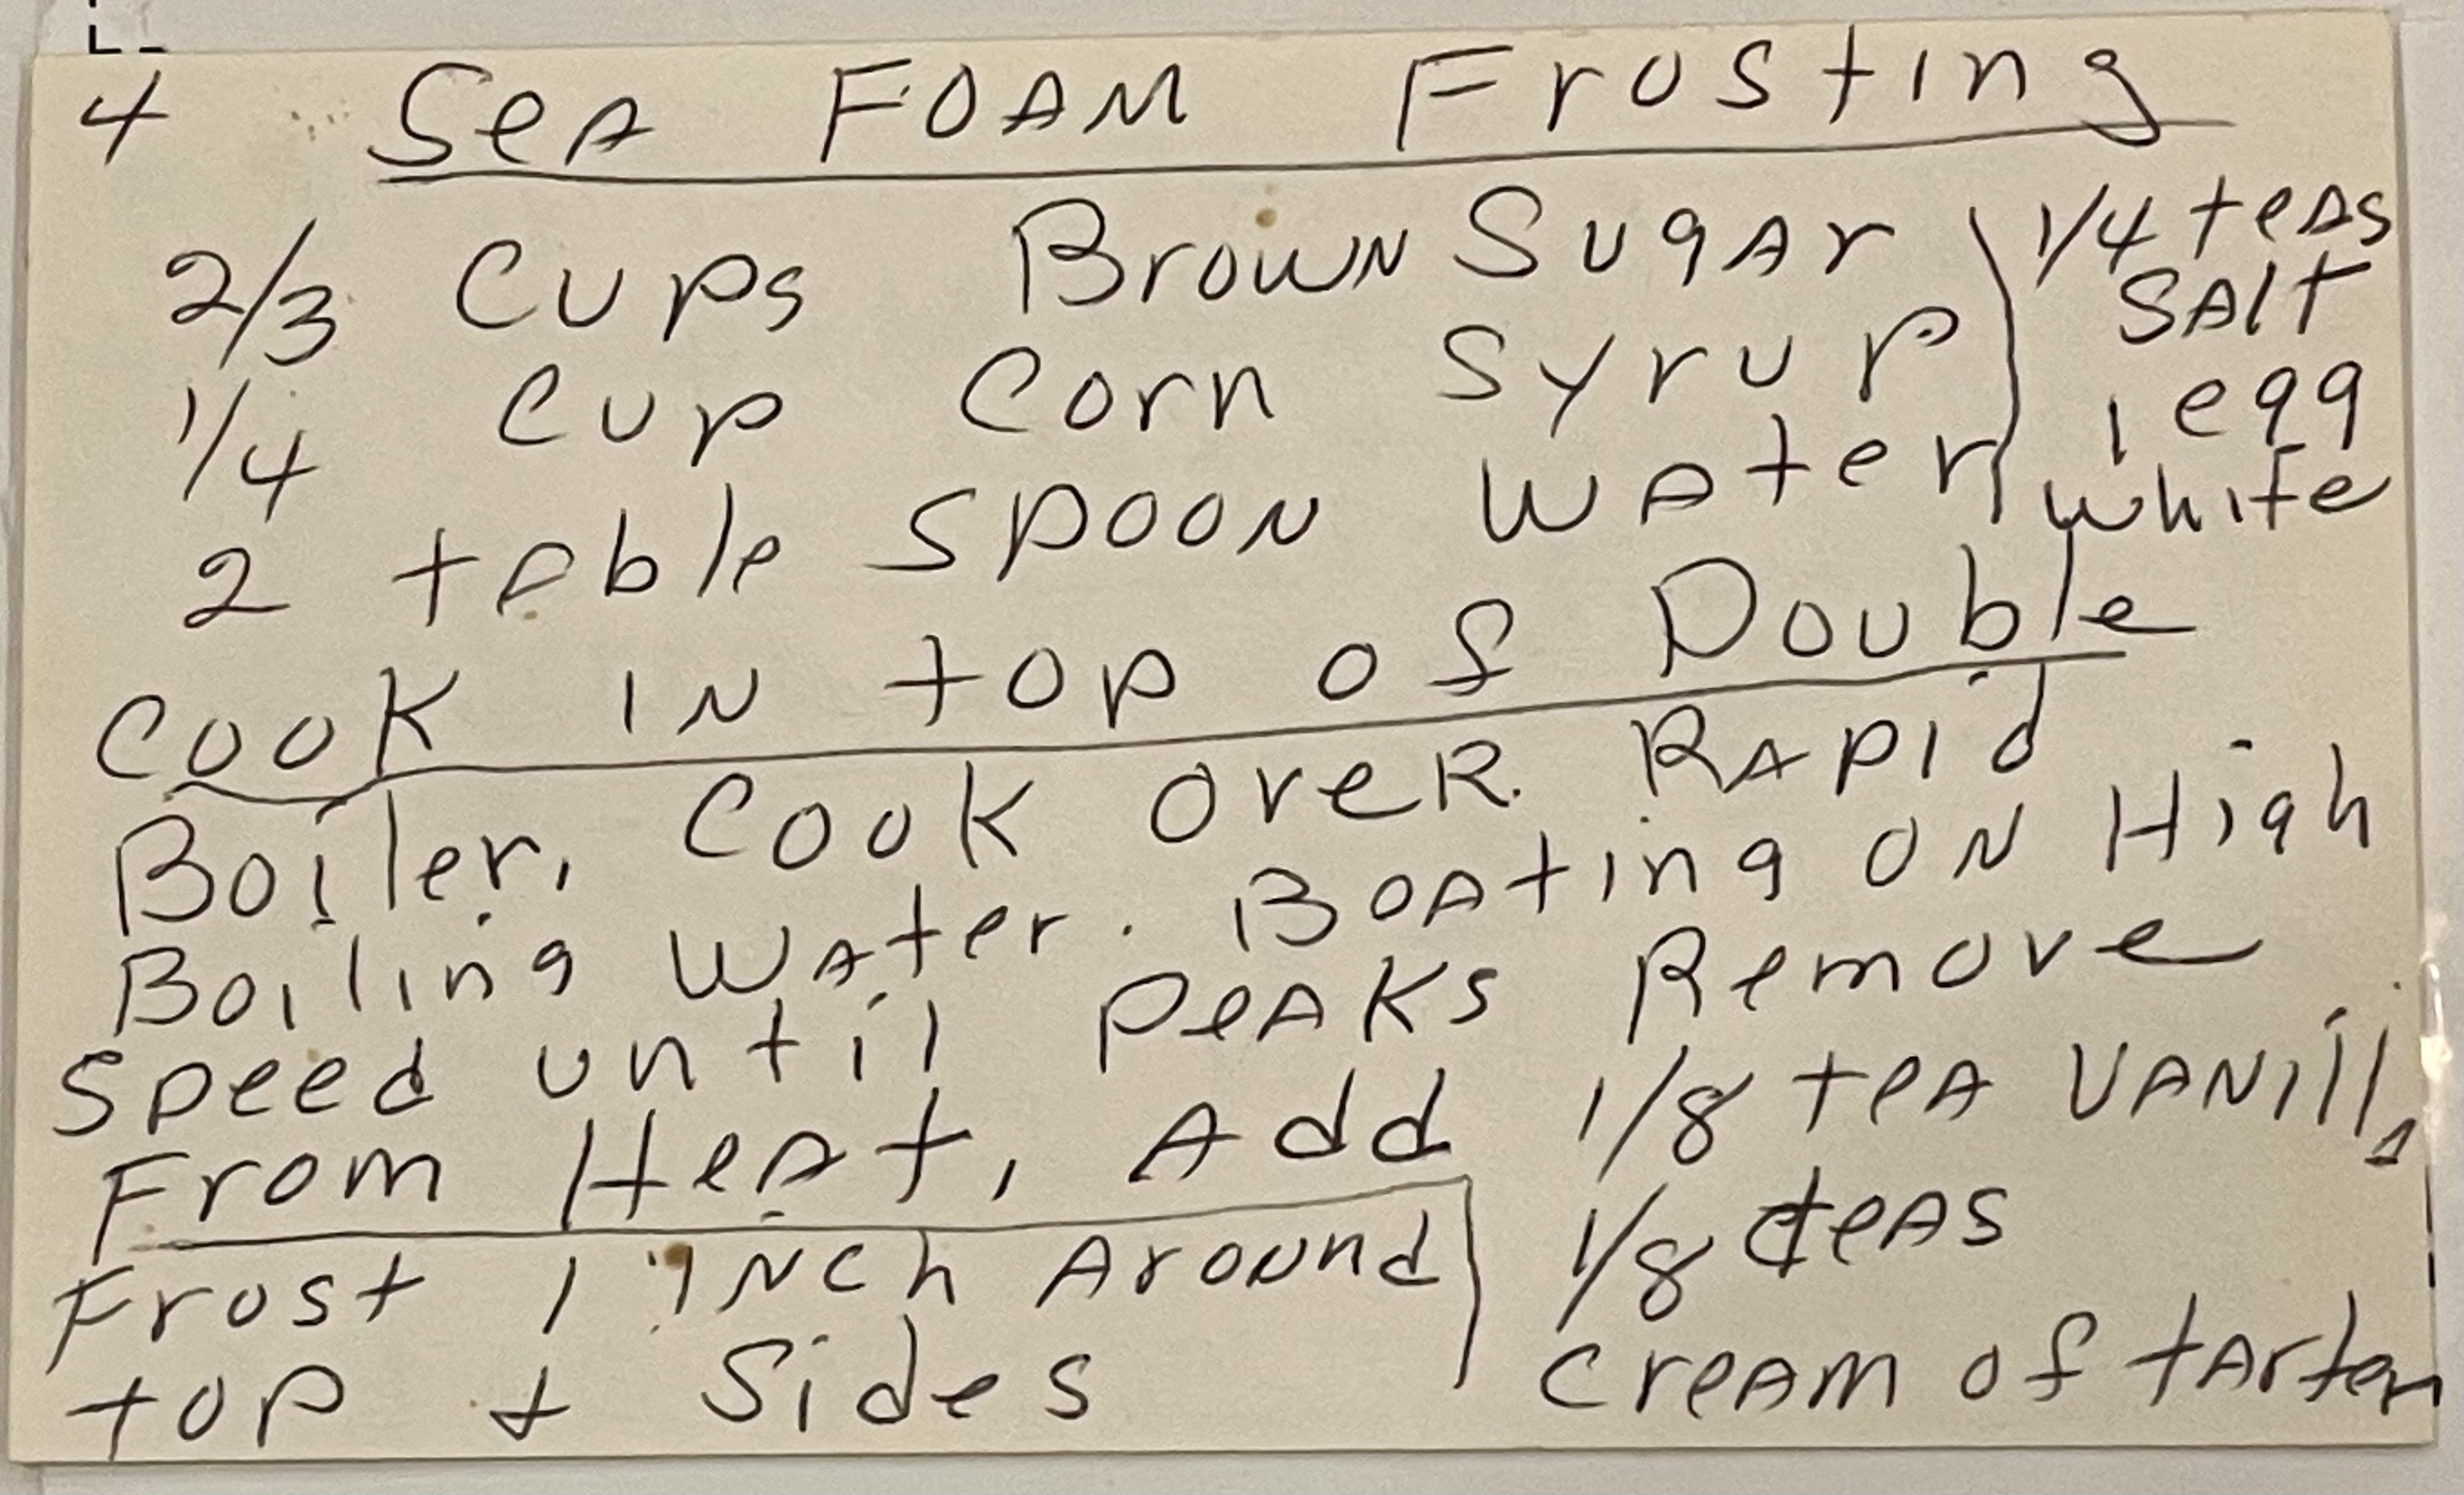 4 SeA FOAM Frosting
2/3 Cups Brown Sugar
1/4 Cup Corn Syrup
2 table spoon water
1/4 teas
SAlt
1 egg
white
Cook IN top of Double
Boiler, Cook over Rapid
Boiling Water. BOAting ON High
Speed until peaks Remove
From Heat, Add 1/8 teA VANilla
Frost 1 inch Around
top & Sides
1/8 teas
cream of tarter